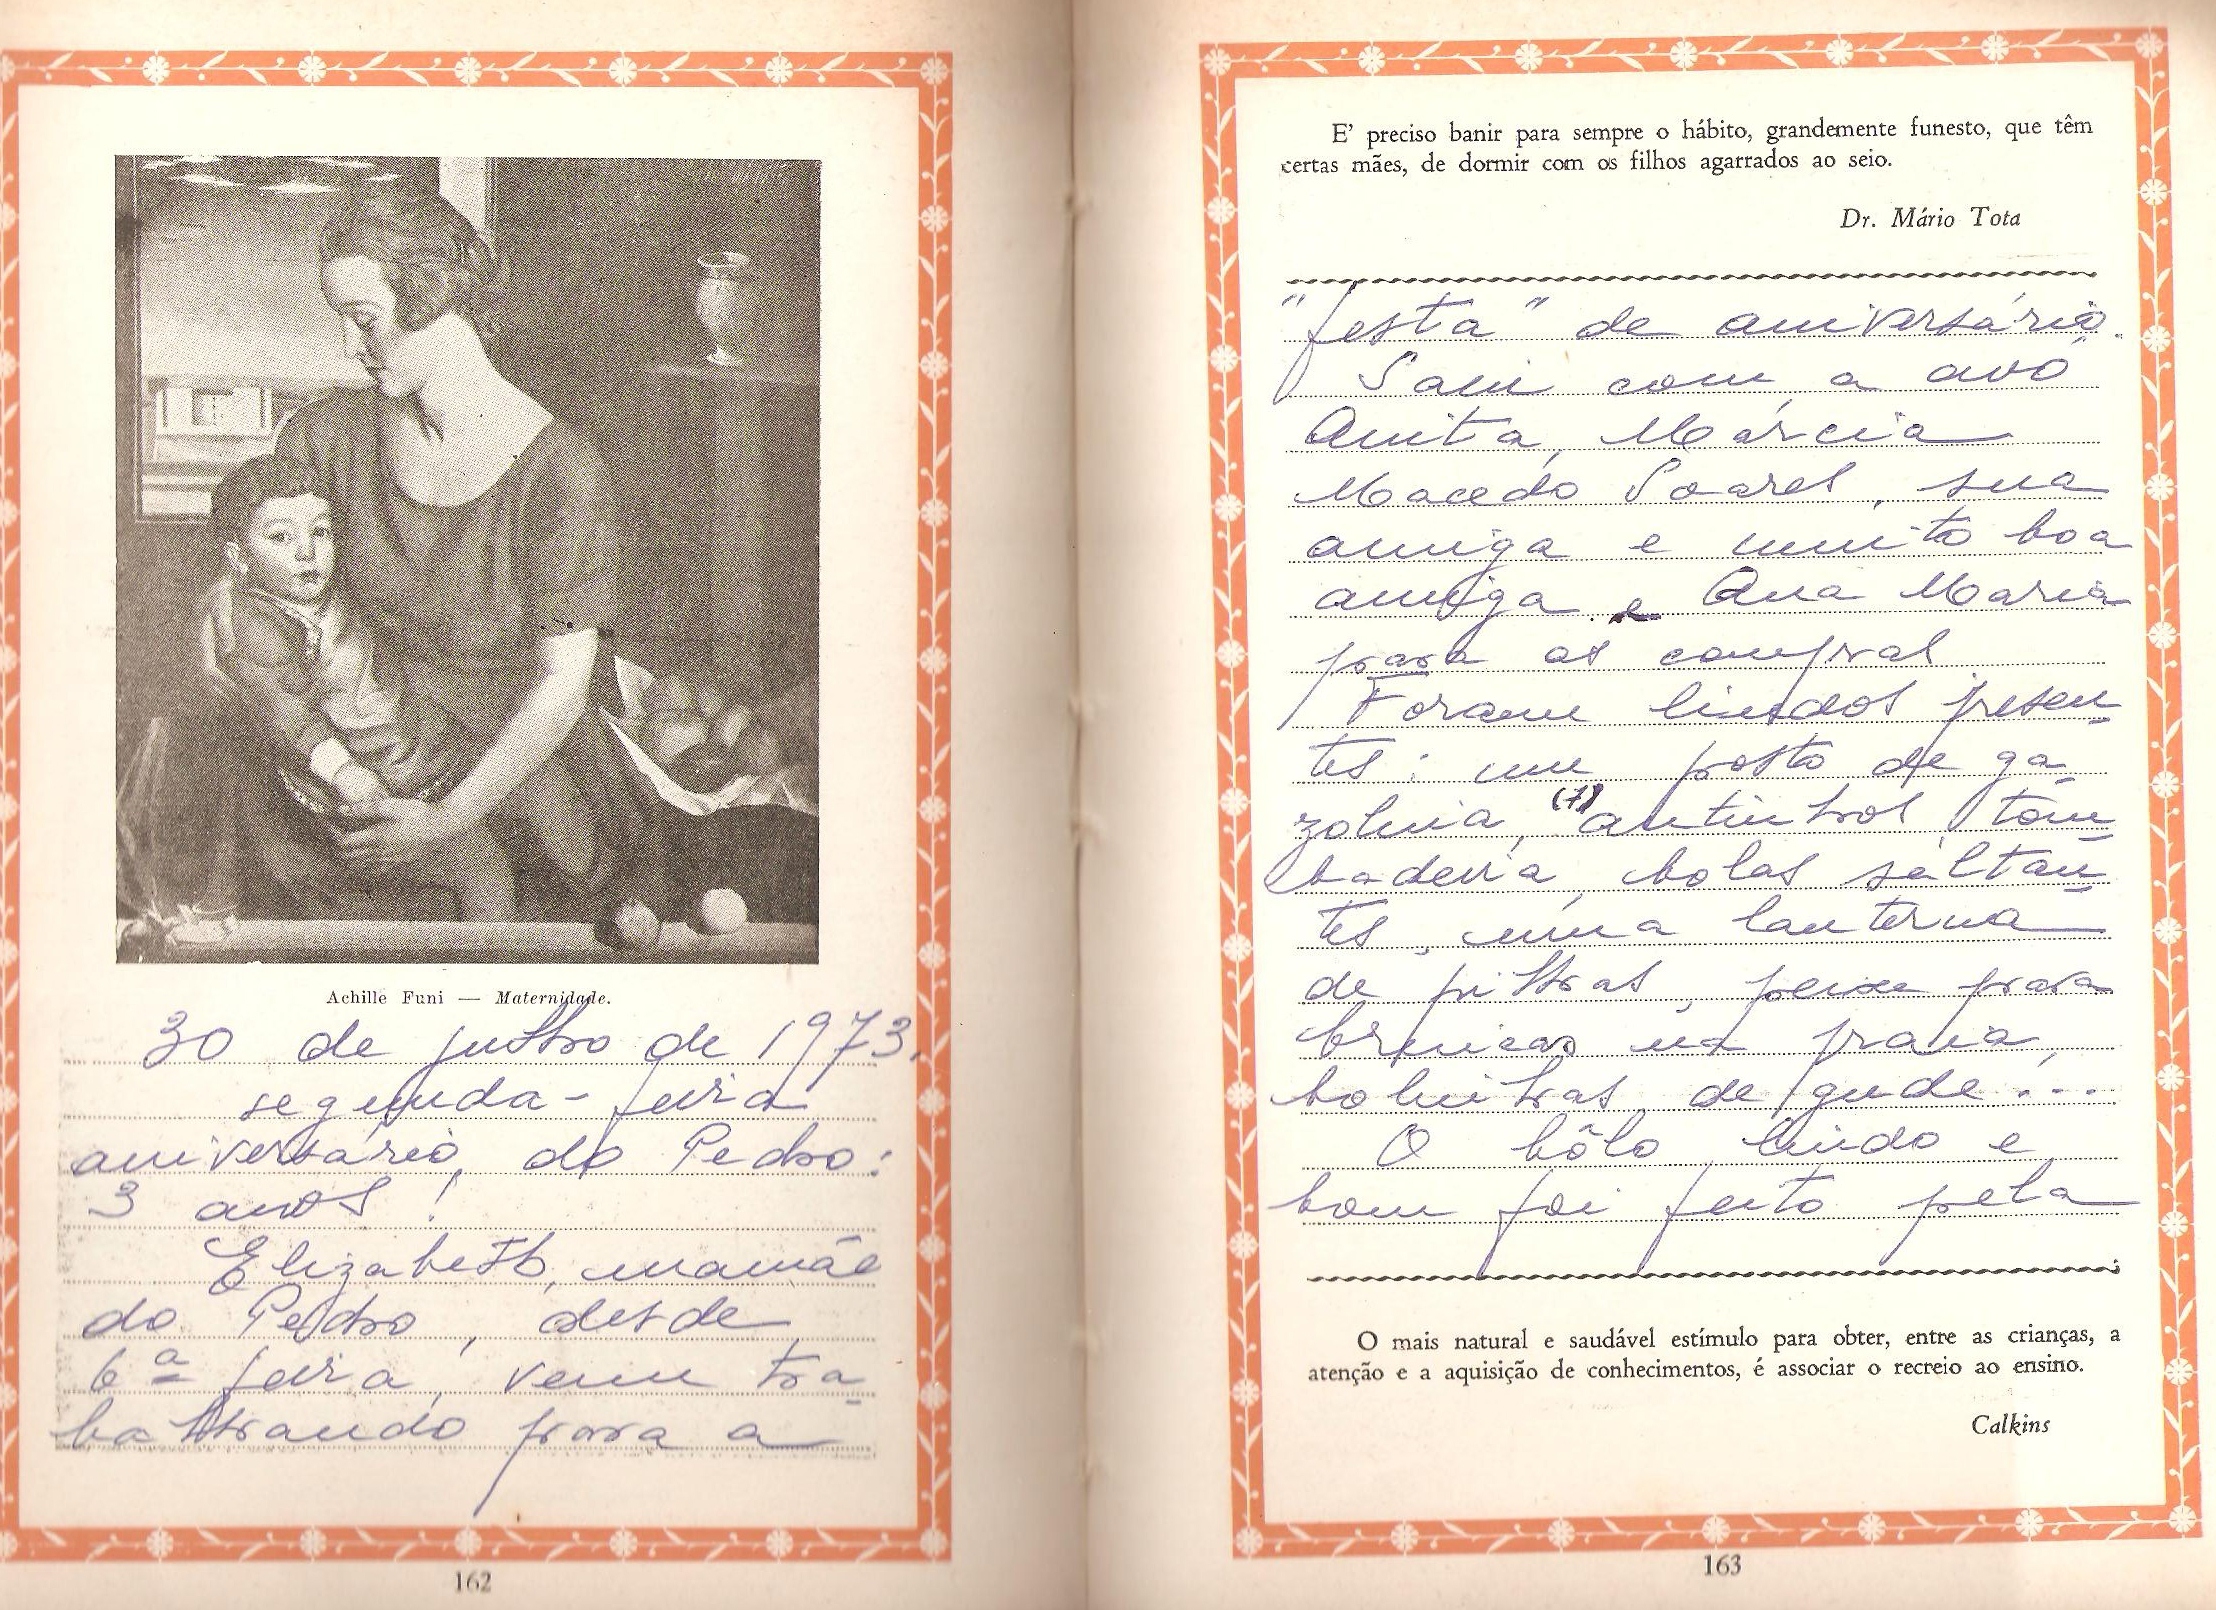 Achille Funi — Maternidade.
30 de julho de 1973.
segunda-feira
aniversário, do Pedro:
3 anos!
Elizabeth, mamãe
do Pedro, desde
6ª feira, vem tra-
balhando para a
162
E' preciso banir para sempre o hábito, grandemente funesto, que têm
certas mães, de dormir com os filhos agarrados ao seio.
Dr. Mário Tota
"festa" de aniversário.
Saiu com a avó
Anita, Márcia
Macedo Soares, sua
amiga e muito boa
amiga e Ana Maria
para as compras
Foram lindos presen-
tes: um posto de ga-
zolina, (7) autinhos, tom-
badeira, bolas saltan-
tes, uma lanterna
de pilhas, peixe para
brincar na praia,
bolinhas de gude...
O bôlo lindo e
bom foi feito pela
O mais natural e saudável estímulo para obter, entre as crianças, a
atenção e a aquisição de conhecimentos, é associar o recreio ao ensino.
Calkins
163